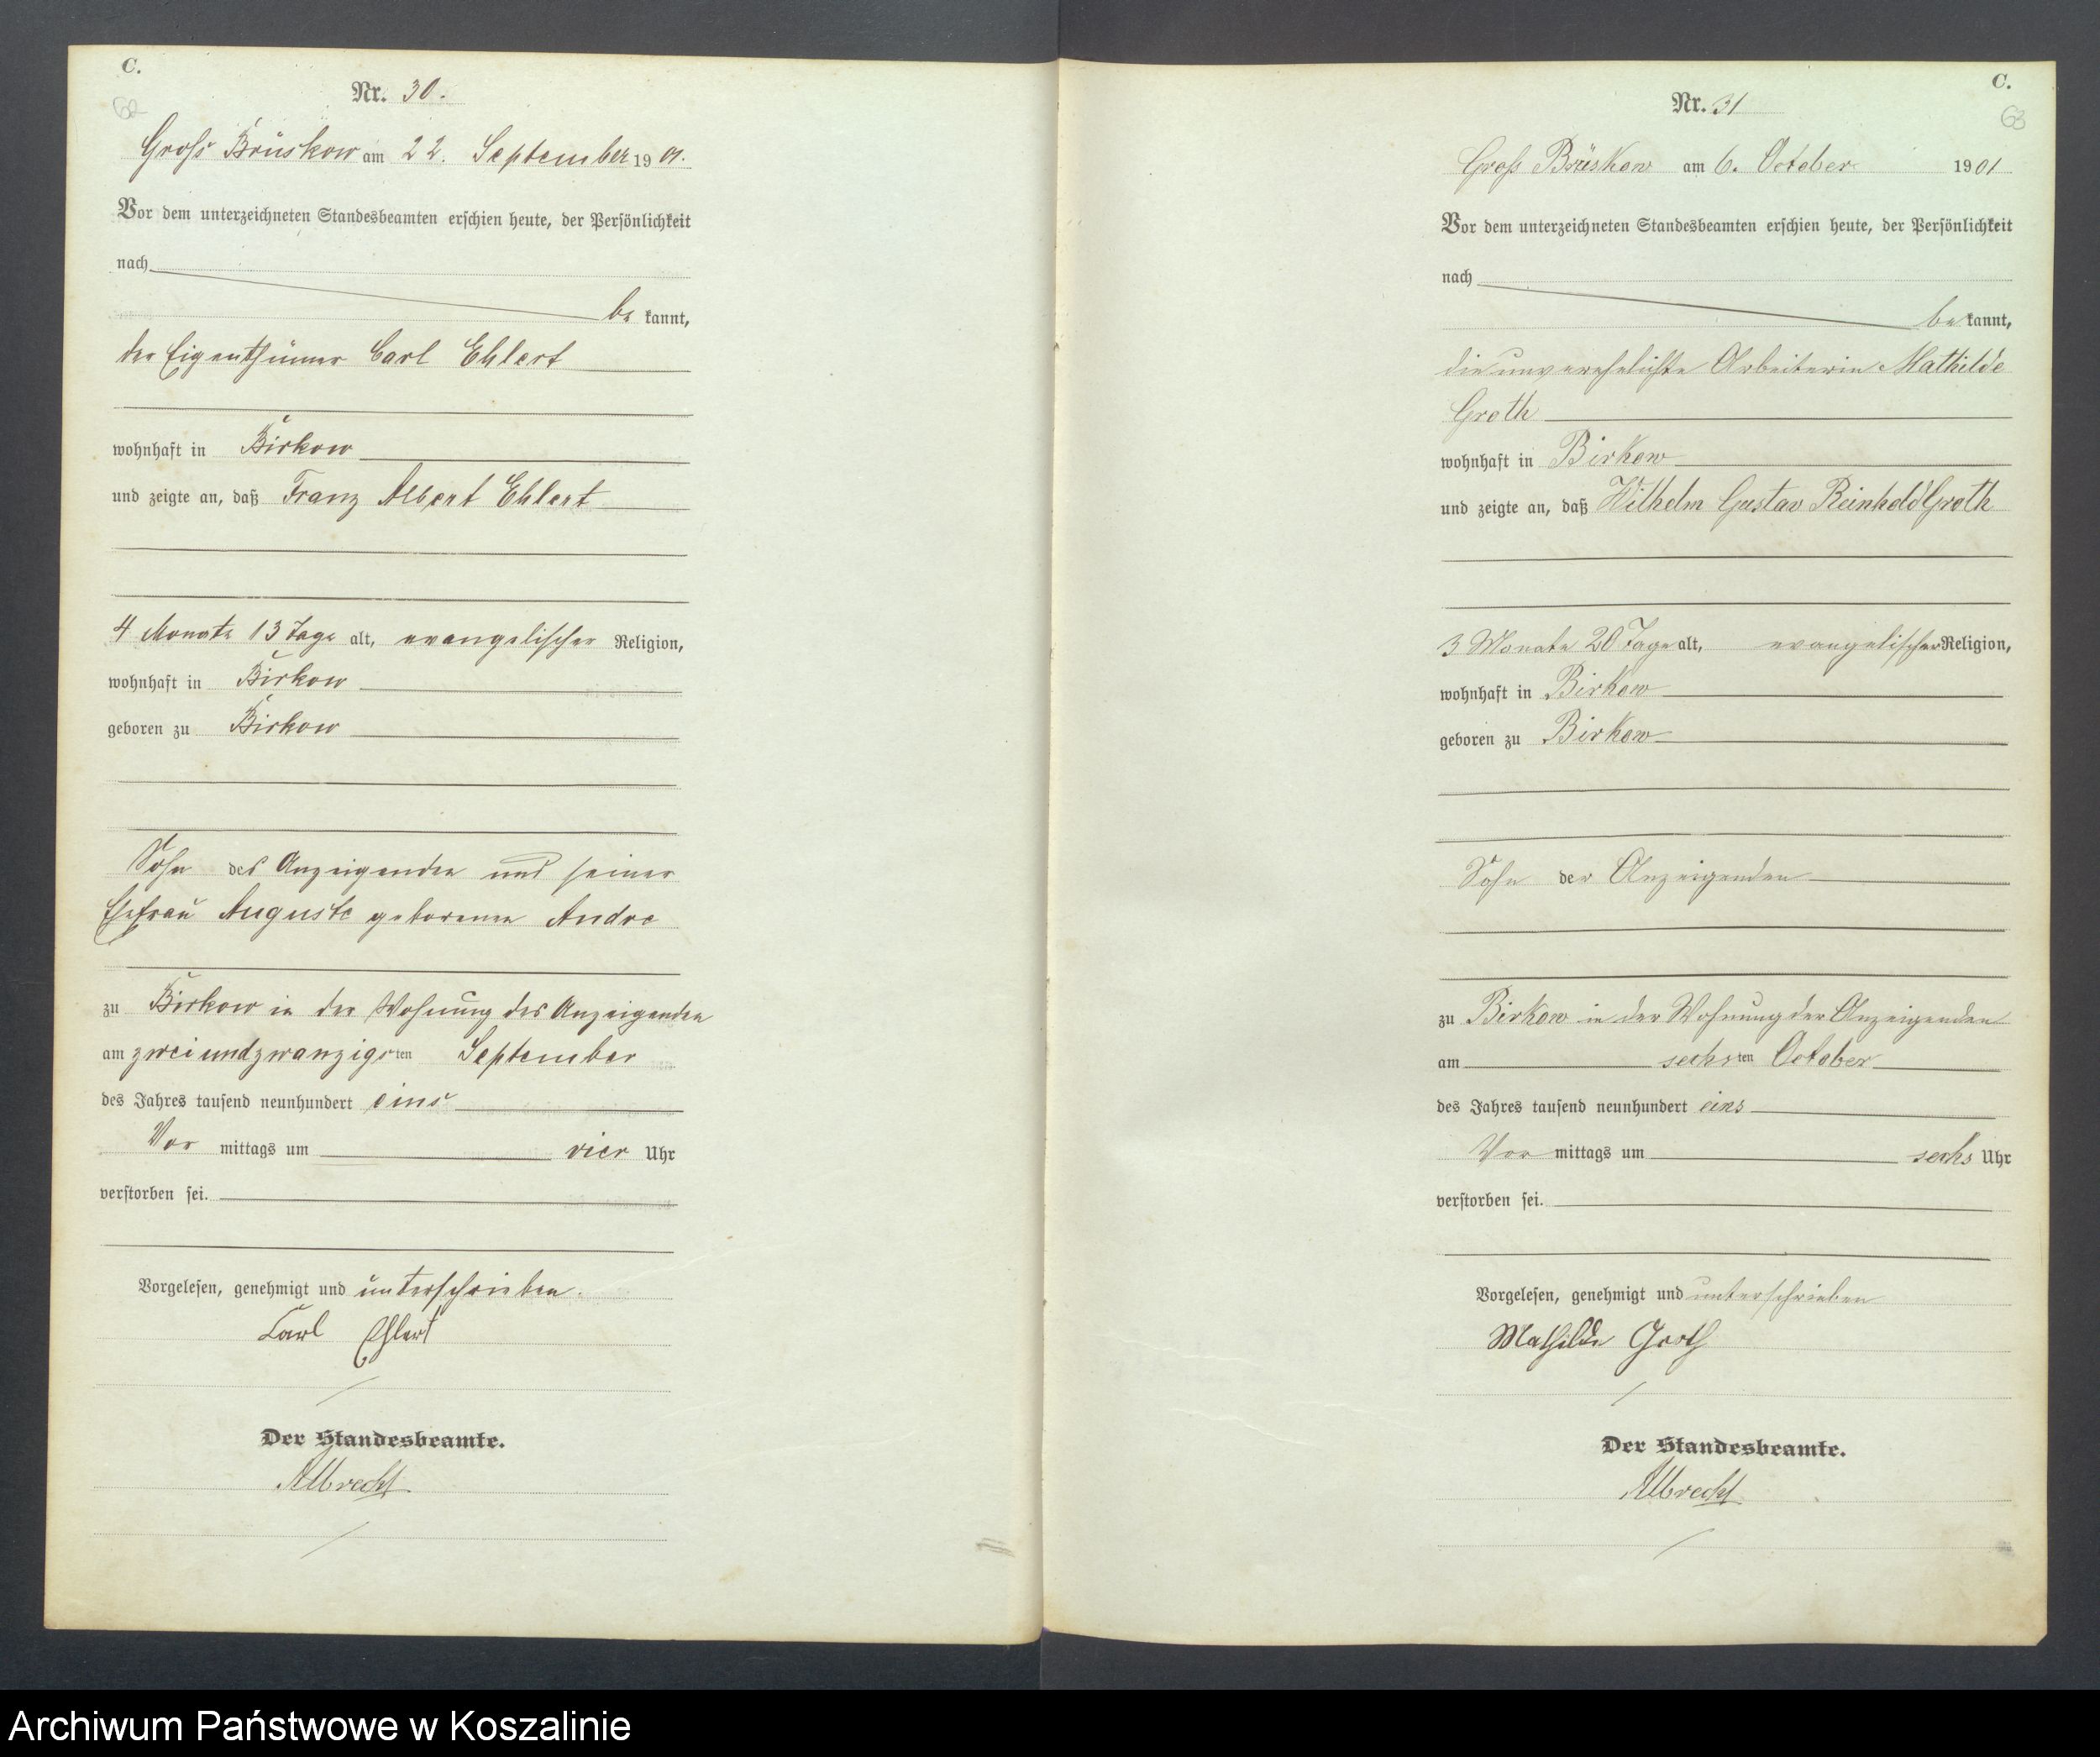 C.
62
Nr. 30.
Groß Brüskow am 22. September 1901.
Vor dem unterzeichneten Standesbeamten erschien heute, der Persönlichkeit
nach
be kannt,
der Eigenthümer Carl Ehlert
wohnhaft in Birkow
und zeigte an, daß Franz Albert Ehlert
4 Monate 13 Tage alt, evangelischer Religion,
wohnhaft in Birkow
geboren zu Birkow
Sohn des Anzeigenden und seiner
Ehefrau Auguste geborenen
zu Birkow in der Wohnung des Anzeigenden
am zweiundzwanzigsten September
des Jahres tausend neunhundert eins
Vor mittags um vier Uhr
verstorben sei.
Vorgelesen, genehmigt und unterschrieben.
Carl Ehlert
Der Standesbeamte.
Albrecht
C.
63
Nr. 31
Groß Brüskow am 6. October 1901
Vor dem unterzeichneten Standesbeamten erschien heute, der Persönlichkeit
nach
be kannt,
die unverehelichte Arbeiterin Mathilde
Groth
wohnhaft in Birkow
und zeigte an, daß Wilhelm Gustav Reinhold Groth
3 Monate 20 Tage alt, evangelischer Religion,
wohnhaft in Birkow
geboren zu Birkow
Sohn der Anzeigenden
zu Birkow in der Wohnung der Anzeigenden
am sechsten October
des Jahres tausend neunhundert eins
Vor mittags um sechs Uhr
verstorben sei.
Vorgelesen, genehmigt und unterschrieben
Mathilde Groth
Der Standesbeamte.
Albrecht
Archiwum Państwowe w Koszalinie